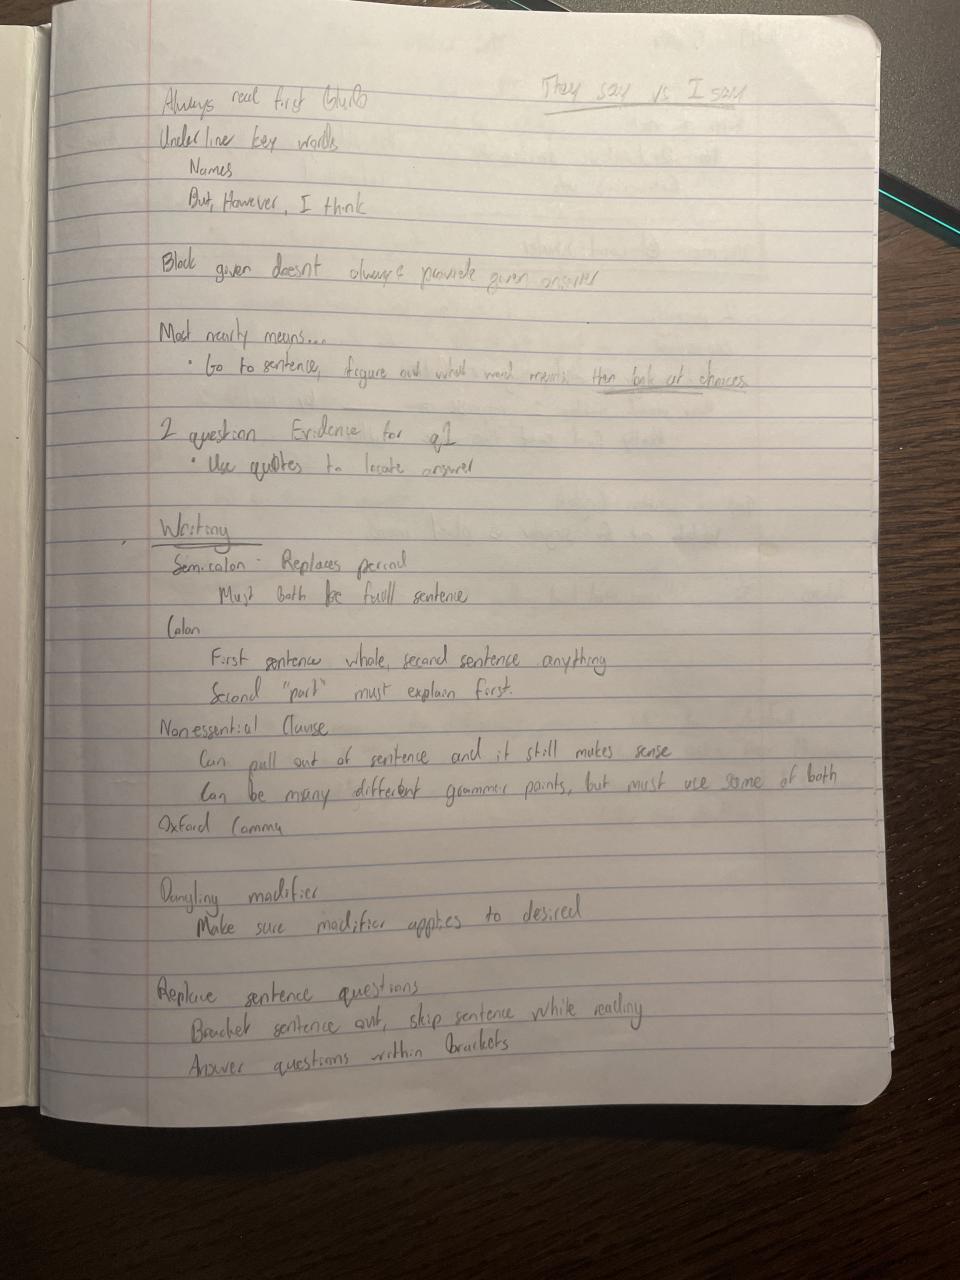 They say vs I say
Always read first blurb
Underline key words
Names
But, However, I think
Block given doesnt always provide given answer
Most nearly means...
• Go to sentence, figure out what word means, then look at choices
2 question Evidence for q1
• Use quotes to locate answer
Writing
Semicolon - Replaces period
Must both be full sentence
Colon
First sentence whole, second sentence anything
Second "part" must explain first.
Nonessential Clause
Can pull out of sentence and it still makes sense
Can be many different grammer points, but must use same of both
Oxford Comma
Dangling modifier
Make sure modifier applies to desired
Replace sentence questions
Bracket sentence out, skip sentence while reading
Answer questions within brackets